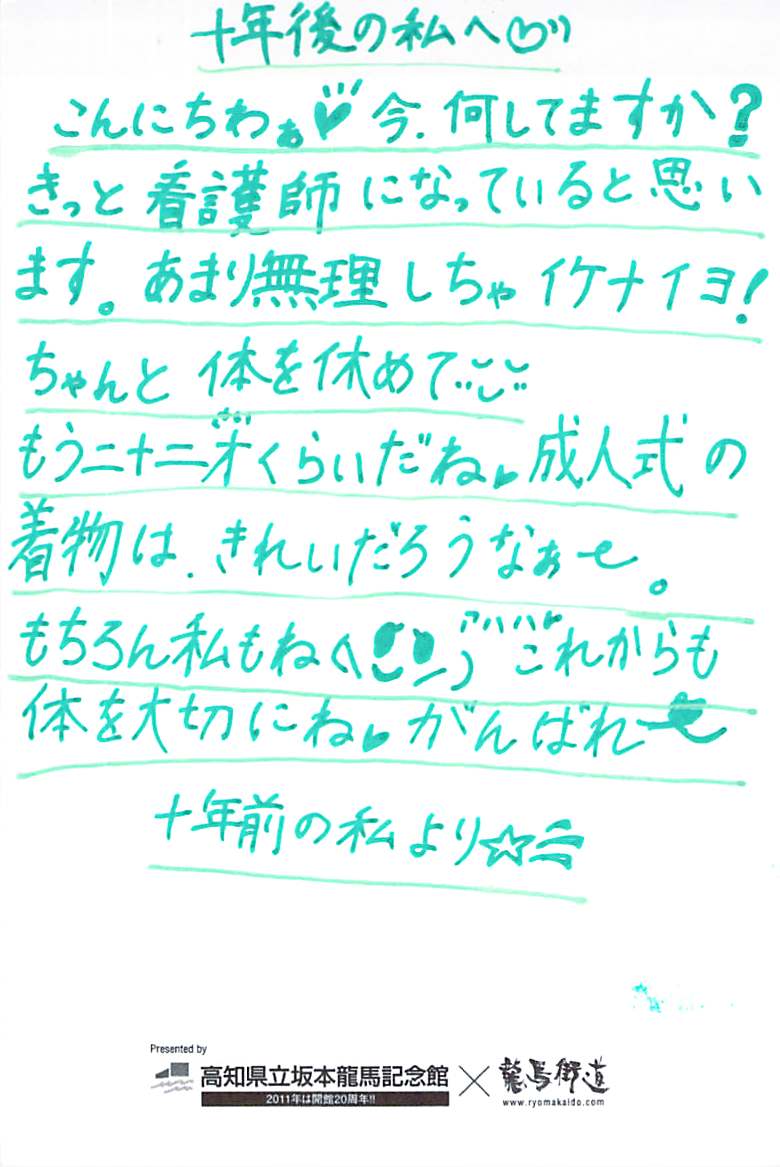 十年後の私へ♡
こんにちわぁ♥今、何してますか?
きっと看護師になっていると思い
ます。あまり無理しちゃイケナイヨ!
ちゃんと体を休めて
もう二十二才くらいだね♥成人式の
着物は、きれいだろうなぁ〜。
もちろん私もね アハハハ これからも
体を大切にね♥がんばれ〜
十年前の私より☆
Presented by
高知県立坂本龍馬記念館×龍馬街道
2011年は開館20周年!!
www.ryomakaido.com